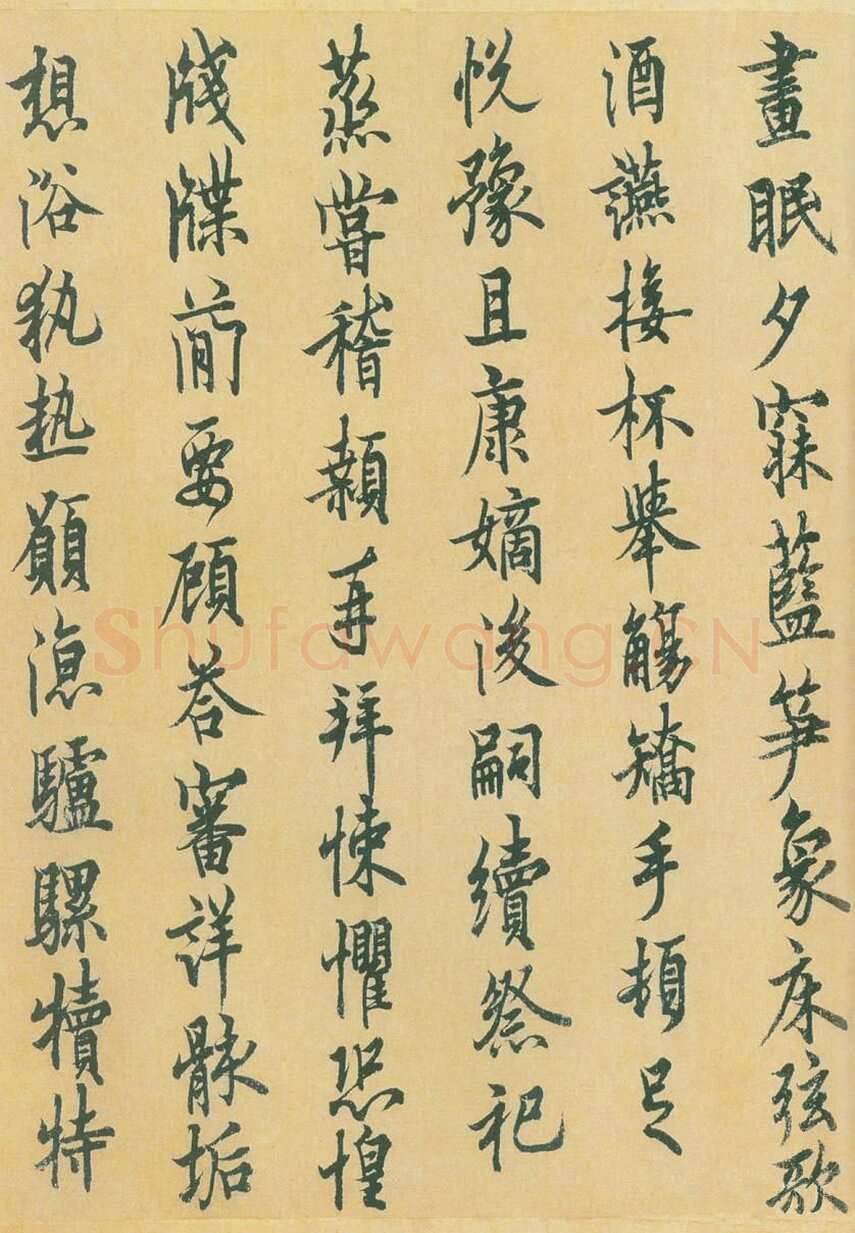 畫眠夕寐藍笋象床弦歌
酒讌接杯舉觴矯手頓足
悅豫且康嫡後嗣續祭祀
蒸嘗稽顙再拜悚懼恐惶
牋牒簡要顧答審詳骸垢
想浴執熱願涼驢騾犢特
Shufawang.CN